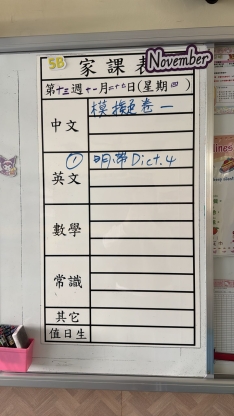 5B 家課表 November
第十三週 十一月二十七日(星期四)
中文 模擬卷一
英文 ① 明帶 Dict. 4
數學
常識
其它
值日生